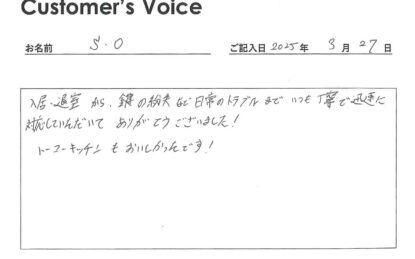 Customer's Voice
お名前 S.O ご記入日 2025 年 3 月 27 日
入居・退室 から、鍵の紛失など日常のトラブルまで いつも丁寧で迅速に
対応していただいて ありがとうございました!
トーコーキッチン もおいしかったです!